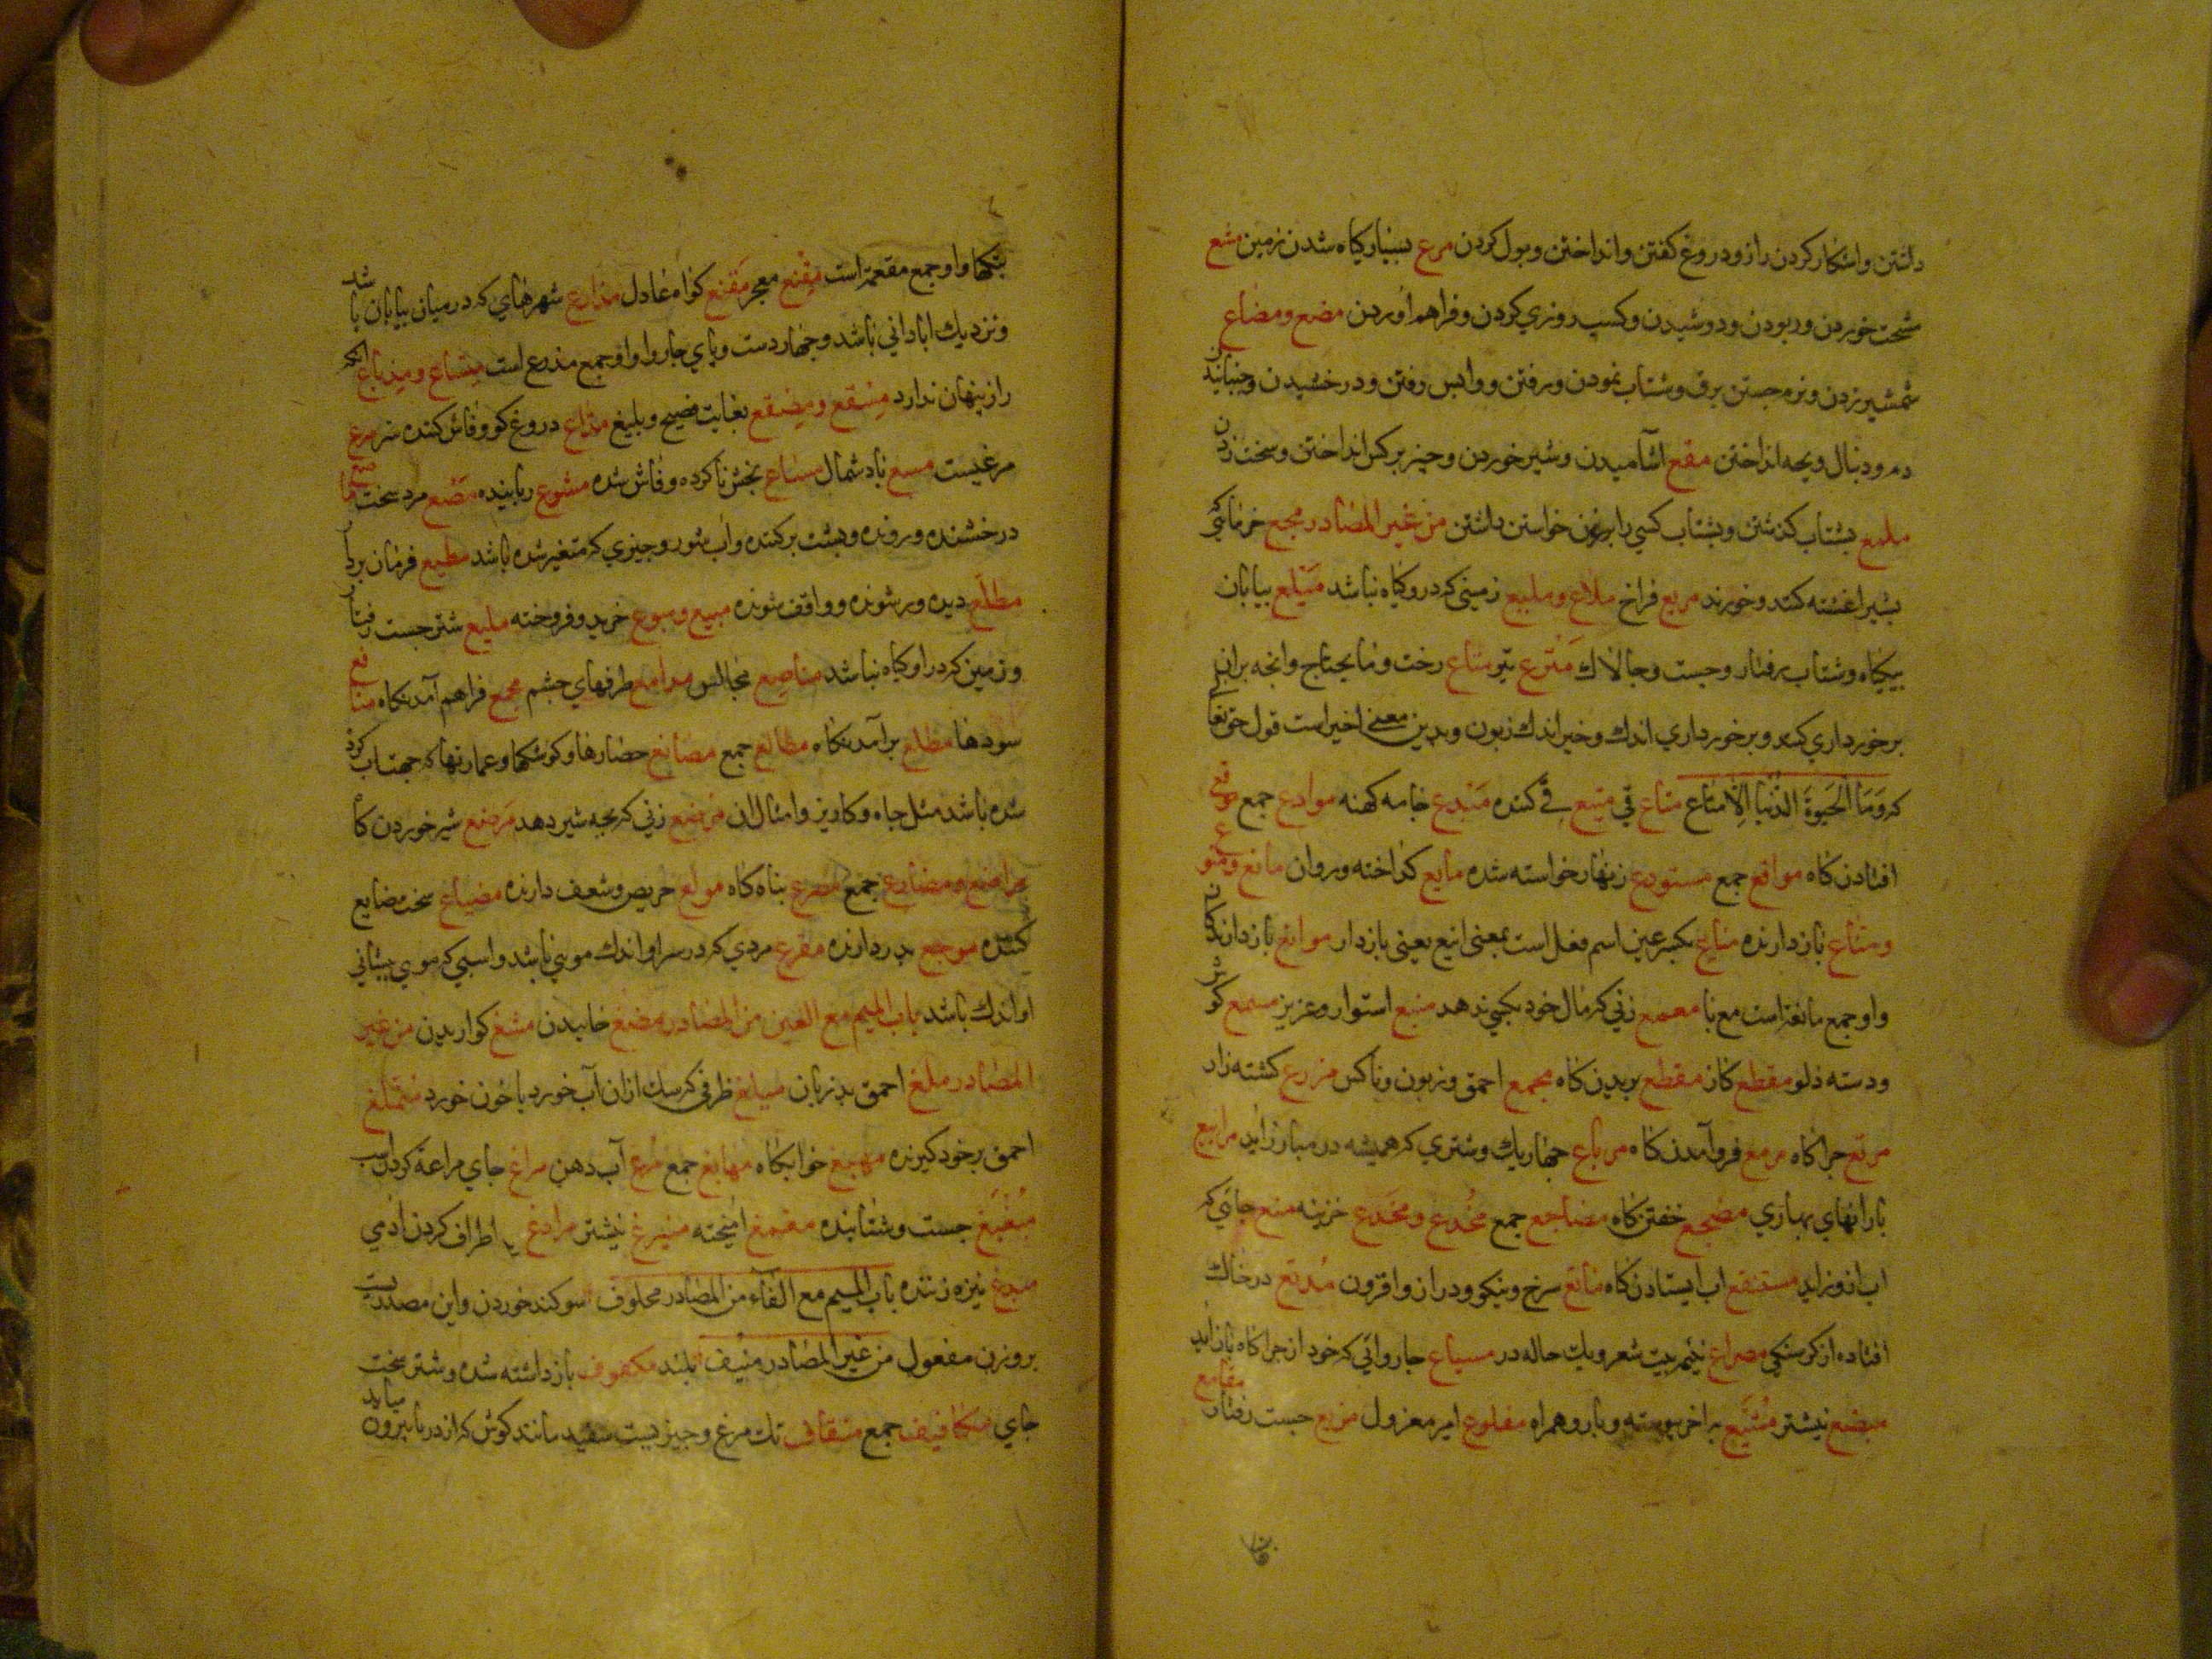 داشتن واشکار کردن راز ودروغ کفتن وانداختن وبول کردن مرع بسیار کیاه شدن زمین مشع
سخت خوردن وربودن ودوشیدن وکسب روزی کردن وفراهم اوردن مضع ومضاع
شمشیر زدن ونره جستن برق وشتاب نمودن ورفتن وواپس رفتن ودرخشیدن وجنبانیدن
دم ودنبال وبچه انداختن مقع اشآمیدن وشیر خوردن وچیز بر کس انداختن وسخت زدن
ملمع بشتاب کذشتن وبشتاب کسی را خواستن داشتن من غیر المصادر مجع خرمائی
بشیر اغشته کنند وخورند مریع فراخ ملاع وملیع زمینی که درو کیاه نباشد میلع بیابان
بیکیاه وشتاب رفتار وجست وچالاک منزع تیر متاع رخت وما یحتاج وانچه بران
برخورداری کنند وبرخورداری اندک وخیر اندک زبون وبدین معنی اخیر است قول حق تعالی
که وَمَا الْحَیوةُ الدُّنْیَا اِلَّا مَتَاع متاع قی متیع قی کننده مَبْدع جامه کهنه موادع جمع موقع
افتادن کاه مواقع جمع مستودع زنهار خواسته شده مایع کداخته وروان مانع ومنوع
ومناع بازدارنده مناع بکسر عین اسم فعل است بمعنی امنع یعنی بازدار موانع بازدارندکان
واو جمع مانعة است مع با معمع زنی که مال خود بکسی ندهد منیع استوار وعزیز مسمع کوش
ودسته دلو مقطع کاز مقطع بریدن کاه مجمع احمق وزبون وناکس مزرع کشته زار
مرتع چراکاه مربع فروآمدن کاه مرباع چهاریک وشتری که همیشه در بهار زاید مرابیع
بارانهای بهاری مضجع خفتن کاه مضاجع جمع مُخدع ومَخدع خزینه منبع جائی که
اب ازو زاید مستنقع اب ایستادن کاه ماتع سرخ ونیکو ودراز وافزون مدقع در خاک
افتاده از کرسنکی مصراع نیم بیت شعر ویک حاله در مسیاع چاروائی که خود از چراکاه باز اید
مبضع نیشتر مشیع براخر پیوسته ویار وهمراه مخلوع امیر معزول مزیع جست رفتار مقامع
بتکها واو جمع مقمعة است مِقنع معجر مَقنع کواه عادل مذارع شهرهای که در میان بیابان باشد
ونزدیک ابادانی باشد وچهار دست وپای چاروا واو جمع مذرع است مشیاع ومذیاع انکه
راز پنهان ندارد مِسقع ومِصقع بغایت فصیح وبلیغ مذاع دروغ کو وفاش کننده سر مرع
مرغیست مسع باد شمال مشاع بخش ناکرده وفاش شده مشوع رباینده مصع مرد سخت
درخشنده ورونده وپشت برکننده واب شور وچیزی که متغیر شده باشد مطیع فرمان بردار
مطلع دیده ور شونده وواقف شونده مبیع ومبیوع خرید وفروخته ملیع شتر جست رفتار
وزمین که در او کیاه نباشد مناصع مجالس مدامع طرفهای چشم مجمع فراهم آمدنکاه منافع
سودها مطلع برآمدنکاه مطالع جمع مصانع حصارها وکوشکها وعمارتها که جهت اب کرده
شده باشد مثل چاه وکاریز وامثال ان مرضع زنی که بچه شیر دهد مَرضع شیر خوردن کاه
مراضع ومضارع جمع مفزع پناه کاه مولع حریص وشعف دارنده مضیاع سخت ضایع
کننده موجع بدرد ارنده مقزع مردی که در سر او اندک موی باشد واسبی که موی پیشانی
او اندک باشد باب المیم مع الغین من المصادر مضغ خاییدن مشغ کواریدن من غیر
المصادر ملغ احمق بدزبان میلغ ظرفی که سک ازان آب خورد یا خون خورد متملغ
احمق برخود کیرنده مهبغ خوابکاه مهابغ جمع مرغ آب دهن مراغ جای مراغة کردن اسب
جست وشتابنده مغمغ امیخته منزغ نیشتر مرادغ اطراف کردن ادمی
مبدغ نیزه زننده باب المیم مع الفآء من المصادر محلوف سوکند خوردن واین مصدریست
بر وزن مفعول من غیر المصادر منیف بلند مکفوف بازداشته شده وشتر سخت
جای مکافیف جمع منقاف تک مرغ وچیزیست سفید مانند کوش که از دریا بیرون میاید